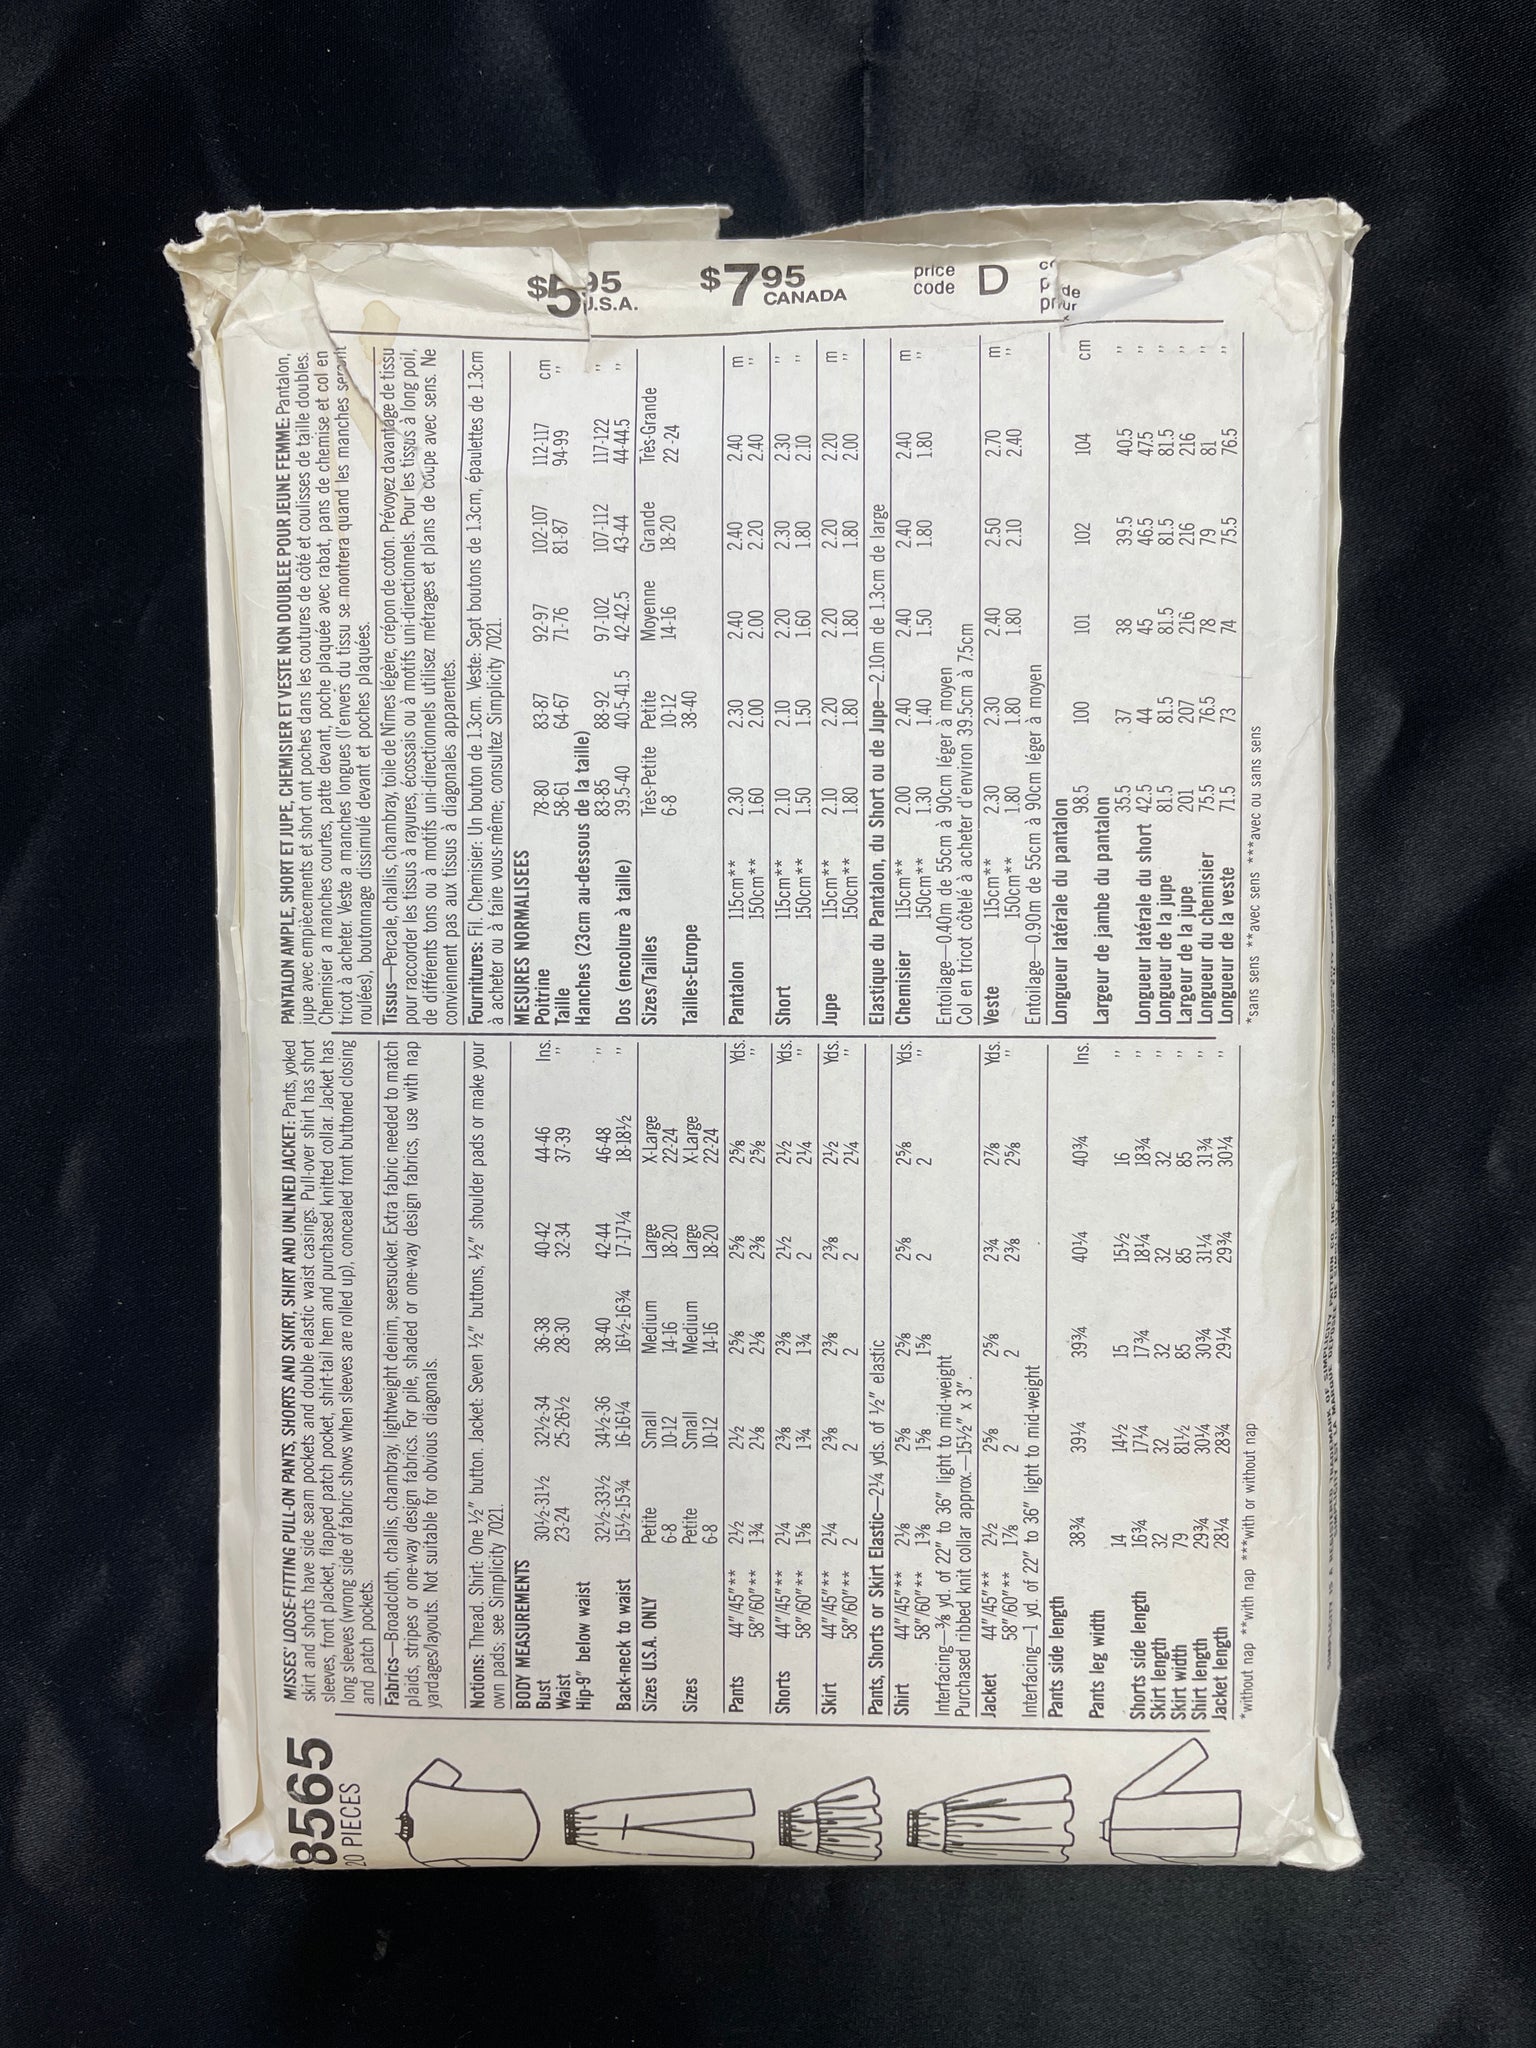 8565
20 PIECES
MISSES' LOOSE-FITTING PULL-ON PANTS, SHORTS AND SKIRT, SHIRT AND UNLINED JACKET: Pants, yoked
skirt and shorts have side seam pockets and double elastic waist casings. Pull-over shirt has short
sleeves, front placket, flapped patch pocket, shirt-tail hem and purchased knitted collar. Jacket has
long sleeves (wrong side of fabric shows when sleeves are rolled up), concealed front buttoned closing
and patch pockets.
Fabrics—Broadcloth, challis, chambray, lightweight denim, seersucker. Extra fabric needed to match
plaids, stripes or one-way design fabrics. For pile, shaded or one-way design fabrics, use with nap
yardages/layouts. Not suitable for obvious diagonals.
Notions: Thread. Shirt: One ½" button. Jacket: Seven ½" buttons, ½" shoulder pads or make your
own pads; see Simplicity 7021.
BODY MEASUREMENTS
Bust 30½-31½ 32½-34 36-38 40-42 44-46 Ins.
Waist 23-24 25-26½ 28-30 32-34 37-39 "
Hip-9" below waist
32½-33½ 34½-36 38-40 42-44 46-48 "
Back-neck to waist 15½-15¾ 16-16¼ 16½-16¾ 17-17¼ 18-18½ "
Sizes U.S.A. ONLY Petite Small Medium Large X-Large
6-8 10-12 14-16 18-20 22-24
Sizes Petite Small Medium Large X-Large
6-8 10-12 14-16 18-20 22-24
Pants 44"/45"** 2½ 2½ 2⅝ 2⅝ 2⅝ Yds.
58"/60"** 1¾ 2⅛ 2⅛ 2⅜ 2⅝ "
Shorts 44"/45"** 2¼ 2⅜ 2⅜ 2½ 2½ Yds.
58"/60"** 1⅝ 1¾ 1¾ 2 2¼ "
Skirt 44"/45"** 2¼ 2⅜ 2⅜ 2⅜ 2½ Yds.
58"/60"** 2 2 2 2 2¼ "
Pants, Shorts or Skirt Elastic—2¼ yds. of ½" elastic
Shirt 44"/45"** 2⅛ 2⅝ 2⅝ 2⅝ 2⅝ Yds.
58"/60"** 1⅜ 1⅝ 1⅝ 2 2 "
Interfacing—⅜ yd. of 22" to 36" light to mid-weight
Purchased ribbed knit collar approx.—15½" x 3".
Jacket 44"/45"** 2½ 2⅝ 2⅝ 2¾ 2⅞ Yds.
58"/60"** 1⅞ 2 2 2⅜ 2⅝ "
Interfacing—1 yd. of 22" to 36" light to mid-weight
Pants side length
38¾ 39¼ 39¾ 40¼ 40¾ Ins.
Pants leg width
14 14½ 15 15½ 16 "
Shorts side length 16¾ 17¼ 17¾ 18¼ 18¾ "
Skirt length 32 32 32 32 32 "
Skirt width 79 81½ 85 85 85 "
Shirt length 29¾ 30¼ 30¾ 31¼ 31¾ "
Jacket length 28¼ 28¾ 29¼ 29¾ 30¼ "
*without nap **with nap ***with or without nap
PANTALON AMPLE, SHORT ET JUPE, CHEMISIER ET VESTE NON DOUBLEE POUR JEUNE FEMME: Pantalon,
jupe avec empiècements et short ont poches dans les coutures de côté et coulisses de taille doubles.
Chemisier a manches courtes, patte devant, poche plaquée avec rabat, pans de chemise et col en
tricot à acheter. Veste a manches longues (l'envers du tissu se montrera quand les manches seront
roulées), boutonnage dissimulé devant et poches plaquées.
Tissus—Percale, challis, chambray, toile de Nîmes légère, crépon de coton. Prévoyez davantage de tissu
pour raccorder les tissus à rayures, écossais ou à motifs uni-directionnels. Pour les tissus à long poil,
de différents tons ou à motifs uni-directionnels utilisez métrages et plans de coupe avec sens. Ne
conviennent pas aux tissus à diagonales apparentes.
Fournitures: Fil. Chemisier: Un bouton de 1.3cm. Veste: Sept boutons de 1.3cm, épaulettes de 1.3cm
à acheter ou à faire vous-même; consultez Simplicity 7021.
MESURES NORMALISEES
Poitrine 78-80 83-87 92-97 102-107 112-117 cm
Taille 58-61 64-67 71-76 81-87 94-99 "
Hanches (23cm au-dessous de la taille)
83-85 88-92 97-102 107-112 117-122 "
Dos (encolure à taille) 39.5-40 40.5-41.5 42-42.5 43-44 44-44.5 "
Sizes/Tailles Très-Petite Petite Moyenne Grande Très-Grande
6-8 10-12 14-16 18-20 22-24
Tailles-Europe 38-40
Pantalon 115cm** 2.30 2.30 2.40 2.40 2.40 m
150cm** 1.60 2.00 2.00 2.20 2.40 "
Short 115cm** 2.10 2.10 2.20 2.30 2.30 "
150cm** 1.50 1.50 1.60 1.80 2.10 "
Jupe 115cm** 2.10 2.20 2.20 2.20 2.20 m
150cm** 1.80 1.80 1.80 1.80 2.00 "
Elastique du Pantalon, du Short ou de Jupe—2.10m de 1.3cm de large
Chemisier 115cm** 2.00 2.40 2.40 2.40 2.40 m
150cm** 1.30 1.40 1.50 1.80 1.80 "
Entoilage—0.40m de 55cm à 90cm léger à moyen
Col en tricot côtelé à acheter d'environ 39.5cm à 7.5cm
Veste 115cm** 2.30 2.30 2.40 2.50 2.70 m
150cm** 1.80 1.80 1.80 2.10 2.40 "
Entoilage—0.90m de 55cm à 90cm léger à moyen
Longueur latérale du pantalon
98.5 100 101 102 104 cm
Largeur de jambe du pantalon
35.5 37 38 39.5 40.5 "
Longueur latérale du short 42.5 44 45 46.5 47.5 "
Longueur de la jupe 81.5 81.5 81.5 81.5 81.5 "
Largeur de la jupe 201 207 216 216 216 "
Longueur du chemisier 75.5 76.5 78 79 81 "
Longueur de la veste 71.5 73 74 75.5 76.5 "
*sans sens **avec sens ***avec ou sans sens
$5.95
U.S.A.
$7.95
CANADA
price
code D
SIMPLICITY IS A REGISTERED TRADEMARK OF SIMPLICITY PATTERN CO. INC. PRINTED IN U.S.A.